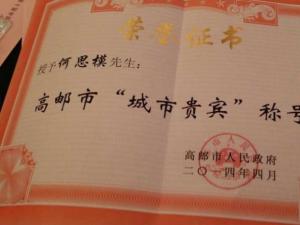 荣誉证书
授予何思模先生：
高邮市“城市贵宾”称号
高邮市人民政府
二〇一四年四月